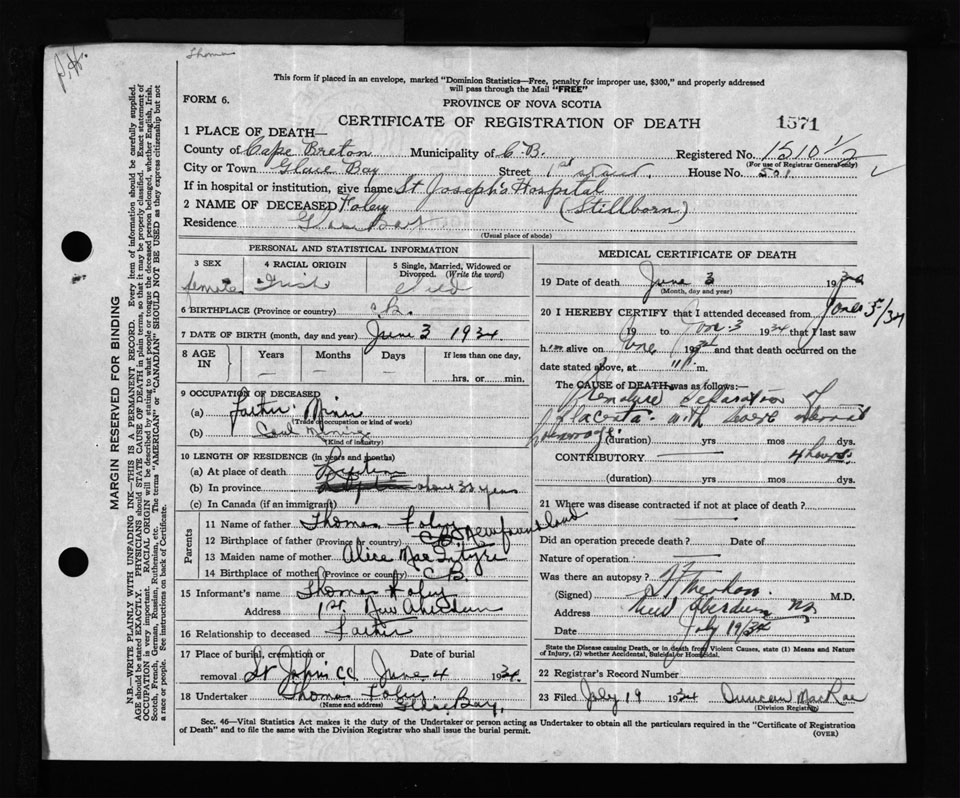 Thomas
This form if placed in an envelope, marked "Dominion Statistics—Free, penalty for improper use, $300," and properly addressed
will pass through the Mail "FREE"
FORM 6.
PROVINCE OF NOVA SCOTIA
CERTIFICATE OF REGISTRATION OF DEATH
1571
1 PLACE OF DEATH—
County of Cape Breton Municipality of C.B. Registered No. 1510 1/2
(For use of Registrar General only)
City or Town Glace Bay Street 1st House No. 501
If in hospital or institution, give name St Joseph's Hospital
2 NAME OF DECEASED Foley (Stillborn)
Residence Glace Bay
(Usual place of abode)
PERSONAL AND STATISTICAL INFORMATION
3 SEX 4 RACIAL ORIGIN 5 Single, Married, Widowed or
Divorced. (Write the word)
female Irish
6 BIRTHPLACE (Province or country) C.B.
7 DATE OF BIRTH (month, day and year) June 3 1934
8 AGE IN Years Months Days If less than one day,
hrs. or min.
9 OCCUPATION OF DECEASED
(a) Father Miner
(Trade or occupation or kind of work)
(b) Coal Mining
(Kind of industry)
10 LENGTH OF RESIDENCE (in years and months)
(a) At place of death
(b) In province years
(c) In Canada (if an immigrant)
Parents
11 Name of father Thomas Foley
12 Birthplace of father (Province or country) Newfoundland
13 Maiden name of mother Alice MacIntyre
14 Birthplace of mother (Province or country) C B.
15 Informant's name Thomas Foley
Address 1st New Aberdeen
16 Relationship to deceased Father
17 Place of burial, cremation or removal St John CC Date of burial June 4 1934.
18 Undertaker Thomas Foley
(Name and address) Glace Bay.
MEDICAL CERTIFICATE OF DEATH
19 Date of death June 3 19
(Month, day and year)
20 I HEREBY CERTIFY that I attended deceased from June 3/34
19 to June 3 1934 that I last saw
h alive on June 19 and that death occurred on
date stated above, at m.
The CAUSE of DEATH was as follows:—
Premature separation of
placenta with internal
(duration) yrs mos dys.
CONTRIBUTORY 4 hours.
(duration) yrs mos dys.
21 Where was disease contracted if not at place of death?
Did an operation precede death? Date of
Nature of operation
Was there an autopsy?
(Signed) M.D.
Address New Aberdeen NS
Date July 19/34
State the Disease causing Death, or in death from Violent Causes, state (1) Means and Nature
of Injury, (2) whether Accidental, Suicidal or Homicidal.
22 Registrar's Record Number
23 Filed July 19 1934 Duncan MacRae
(Division Registrar)
Sec. 46—Vital Statistics Act makes it the duty of the Undertaker or person acting as Undertaker to obtain all the particulars required in the "Certificate of Registration
of Death" and to file the same with the Division Registrar who shall issue the burial permit.
(OVER)
MARGIN RESERVED FOR BINDING
N.B.—WRITE PLAINLY WITH UNFADING INK—THIS IS A PERMANENT RECORD. Every item of information should be carefully supplied.
AGE should be stated EXACTLY. PHYSICIANS should STATE CAUSE OF DEATH in plain terms, so that it may be properly classified. Exact statement of
OCCUPATION is very important. RACIAL ORIGIN will be described by stating to what people or tongue the deceased person belonged, whether English, Irish,
Scotch, French, German, Russian, Ruthenian, etc. The terms "AMERICAN" or "CANADIAN" SHOULD NOT BE USED as they express citizenship but not
a race or people. See instructions on back of Certificate.